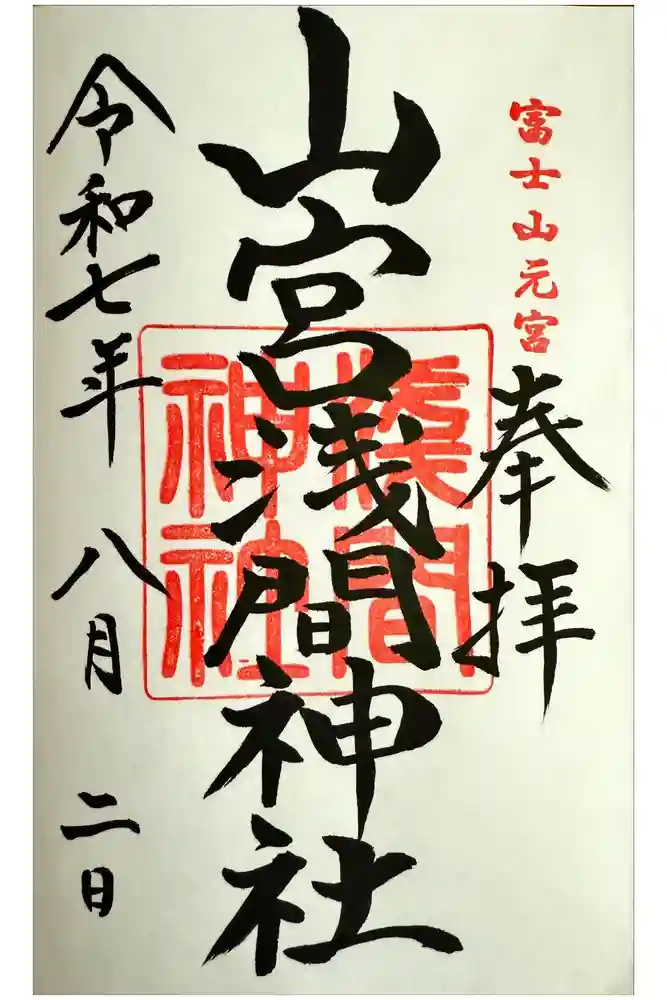 富士山元宮
奉拝
山宮浅間神社
淺間
神社
令和七年八月二日